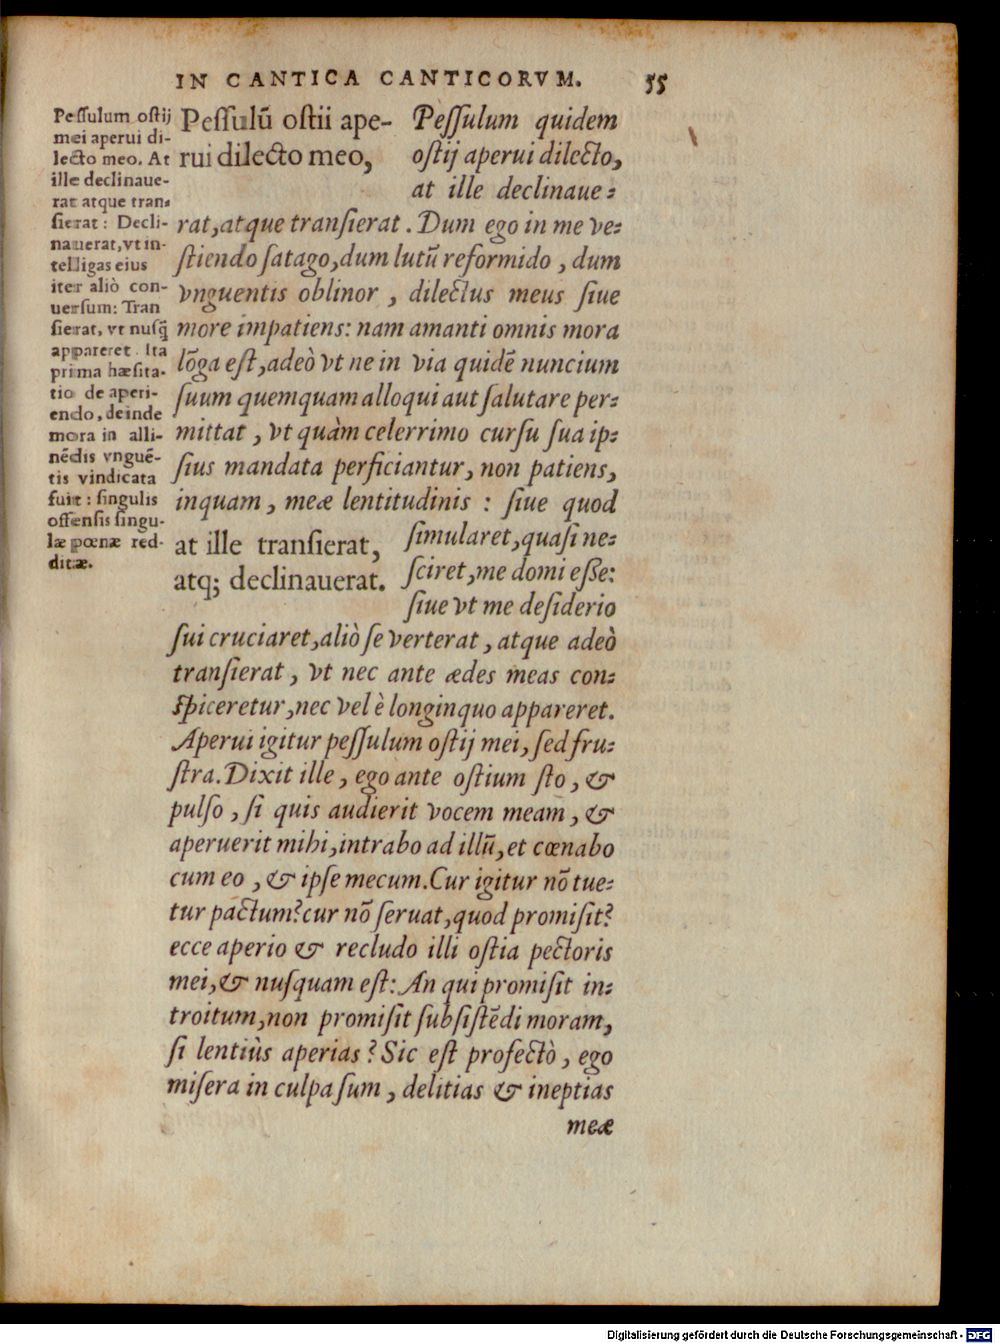 IN CANTICA CANTICORVM. 55
Peſſulum oſtij
mei aperui di-
lecto meo. At
ille declinaue-
rat atque tran-
ſierat: Decli-
nauerat, vt in-
telligas eius
iter aliò con-
uerſum: Tran
ſierat, vt nuſq̃
appareret. Ita
prima hæſita-
tio de aperi-
endo, deinde
mora in alli-
nẽdis vnguẽ-
tis vindicata
fuit: ſingulis
offenſis ſingu-
læ pœnæ red-
ditæ.
Peſſulũ oſtii ape-
rui dilecto meo,
Peſſulum quidem
oſtij aperui dilecto,
at ille declinaue-
rat, atque tranſierat. Dum ego in me ve-
ſtiendo ſatago, dum lutũ reformido, dum
vnguentis oblinor, dilectus meus ſiue
more impatiens: nam amanti omnis mora
lõga eſt, adeò vt ne in via quidẽ nuncium
ſuum quemquam alloqui aut ſalutare per-
mittat, vt quàm celerrimo curſu ſua ip-
ſius mandata perficiantur, non patiens,
inquam, meæ lentitudinis: ſiue quod
at ille tranſierat,
atq; declinauerat.
ſimularet, quaſi ne-
ſciret, me domi eſſe:
ſiue vt me deſiderio
ſui cruciaret, aliò ſe verterat, atque adeò
tranſierat, vt nec ante ædes meas con-
ſpiceretur, nec vel è longinquo appareret.
Aperui igitur peſſulum oſtij mei, ſed fru-
ſtra. Dixit ille, ego ante oſtium ſto, &
pulſo, ſi quis audierit vocem meam, &
aperuerit mihi, intrabo ad illũ, et cœnabo
cum eo, & ipſe mecum. Cur igitur nõ tue-
tur pactum? cur nõ ſeruat, quod promiſit?
ecce aperio & recludo illi oſtia pectoris
mei, & nuſquam eſt: An qui promiſit in-
troitum, non promiſit ſubſiſtẽdi moram,
ſi lentiùs aperias? Sic eſt profectò, ego
miſera in culpa ſum, delitias & ineptias
meæ
Digitalisierung gefördert durch die Deutsche Forschungsgemeinschaft - DFG